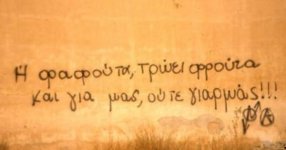 Η φαφούτα, τρώει φρούτα
και για μας, ούτε γιαρμάς!!!